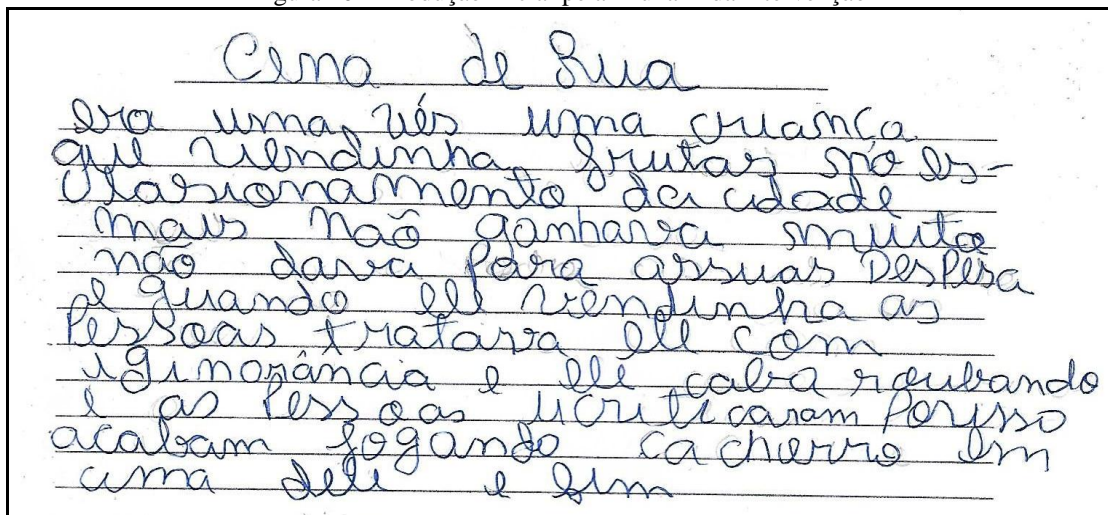 Cena de Rua
era uma vês uma criança
que vendinha frutas no es-
tasionamento da cidade
mais não ganhava muito
não dava para assuas DesPesa
e quando ele vendinha as
Pessoas tratava ele com
iginorância e ele caba roubando
e as Pessoas criticavam Porisso
acabam jogando cacherro em
cima dele e fim